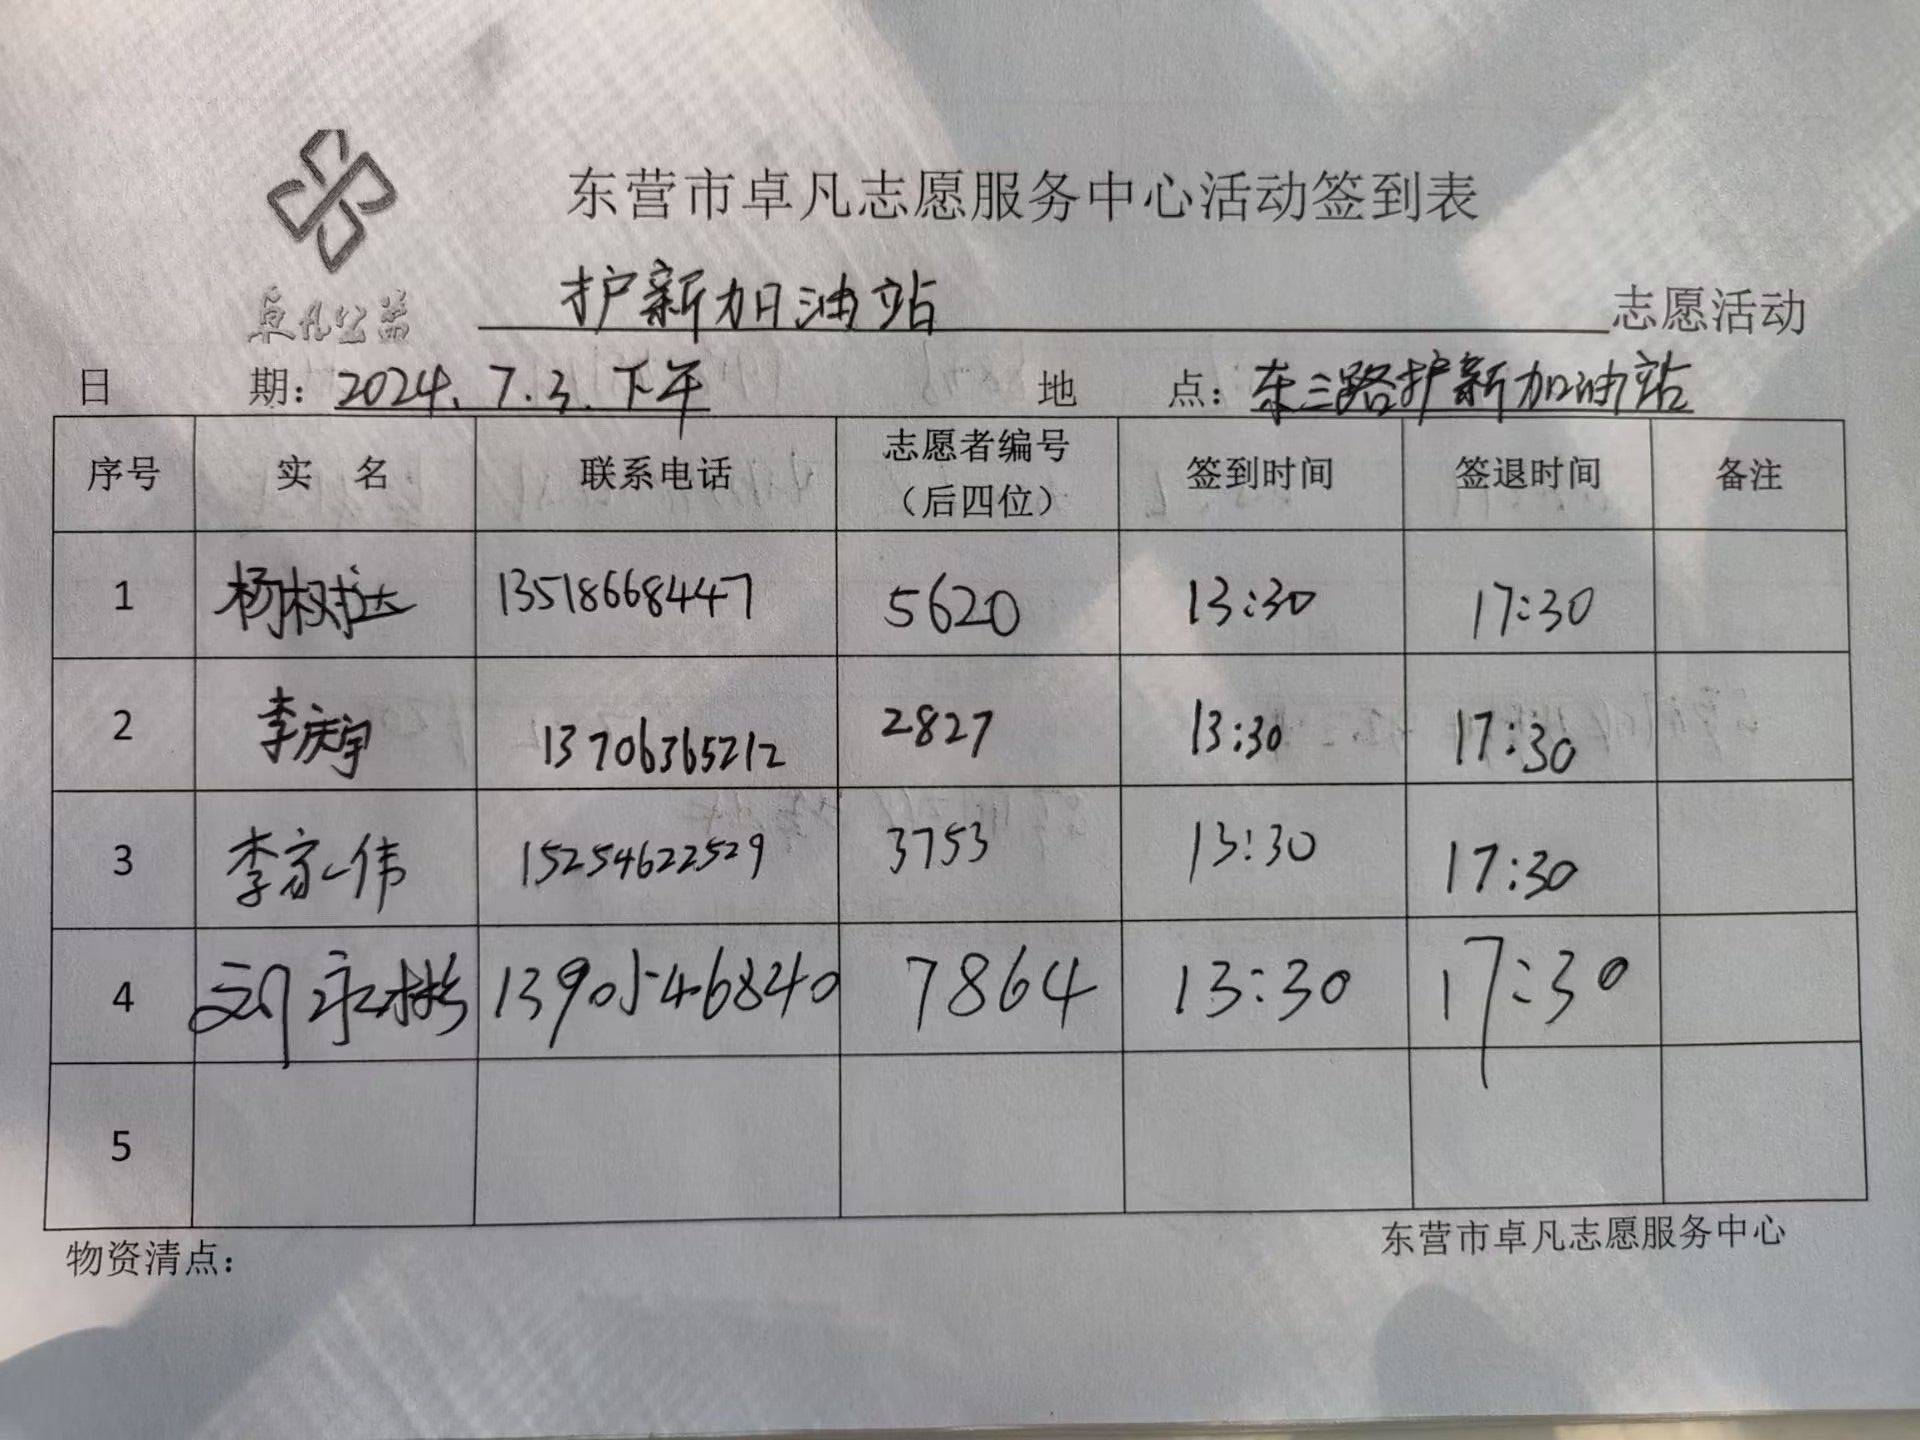 东营市卓凡志愿服务中心活动签到表
卓凡公益
护新加油站 志愿活动
日 期：2024.7.3.下午 地 点：东三路护新加油站
序号 实 名 联系电话 志愿者编号（后四位） 签到时间 签退时间 备注
1 杨树达 13518668447 5620 13:30 17:30
2 李庆宇 13706365212 2827 13:30 17:30
3 李家伟 15254622529 3753 13:30 17:30
4 刘永彬 1390546840 7864 13:30 17:30
5
物资清点：
东营市卓凡志愿服务中心